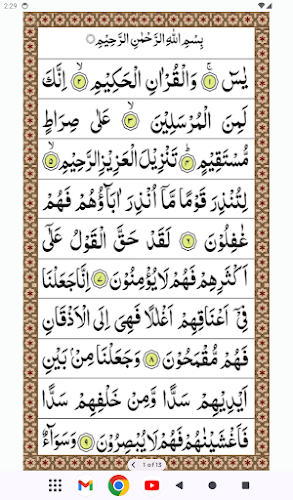 2:29
بِسْمِ اللّٰهِ الرَّحْمٰنِ الرَّحِيْمِ
يٰسٓ ۚ‏﴿۱﴾ وَالْقُرْاٰنِ الْحَكِيْمِ ۙ‏﴿۲﴾ اِنَّكَ
لَمِنَ الْمُرْسَلِيْنَ ۙ‏﴿۳﴾ عَلٰى صِرَاطٍ
مُّسْتَقِيْمٍ ؕ‏﴿۴﴾ تَنْزِيْلَ الْعَزِيْزِ الرَّحِيْمِ ۙ‏﴿۵﴾
لِتُنْذِرَ قَوْمًا مَّاۤ اُنْذِرَ اٰبَآؤُهُمْ فَهُمْ
غٰفِلُوْنَ ‏﴿۶﴾ لَقَدْ حَقَّ الْقَوْلُ عَلٰٓى
اَكْثَرِهِمْ فَهُمْ لَا يُؤْمِنُوْنَ ‏﴿۷﴾ اِنَّا جَعَلْنَا
فِىْۤ اَعْنَاقِهِمْ اَغْلٰلًا فَهِىَ اِلَى الْاَذْقَانِ
فَهُمْ مُّقْمَحُوْنَ ‏﴿۸﴾ وَجَعَلْنَا مِنْۢ بَيْنِ
اَيْدِيْهِمْ سَدًّا وَّمِنْ خَلْفِهِمْ سَدًّا
فَاَغْشَيْنٰهُمْ فَهُمْ لَا يُبْصِرُوْنَ ‏﴿۹﴾ وَسَوَآءٌ
1 of 13